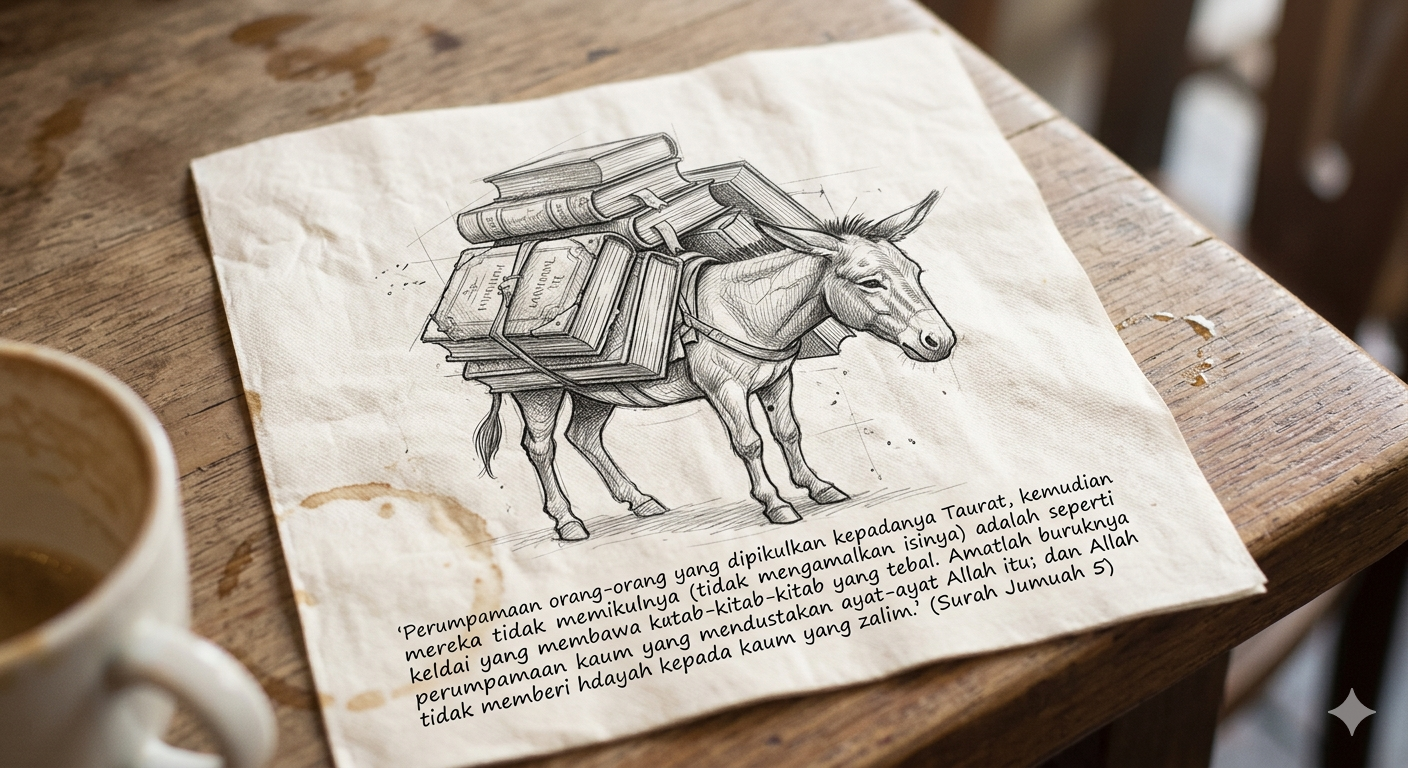 'Perumpamaan orang-orang yang dipikulkan kepadanya Taurat, kemudian
mereka tidak memikulnya (tidak mengamalkan isinya) adalah seperti
keldai yang membawa kutab-kitab-kitab yang tebal. Amatlah buruknya
perumpamaan kaum yang mendustakan ayat-ayat Allah itu; dan Allah
tidak memberi hdayah kepada kaum yang zalim.' (Surah Jumuah 5)